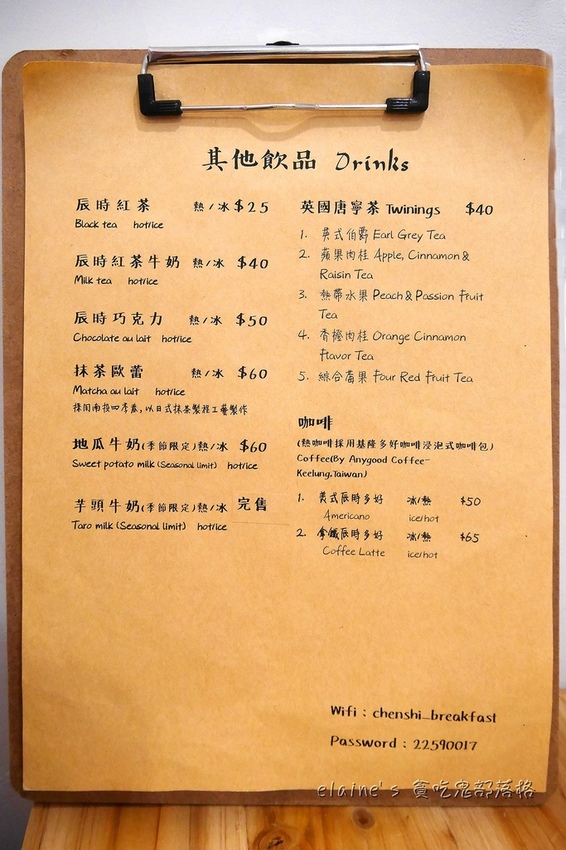 其他飲品 Drinks
辰時紅茶 熱/冰 $25
Black tea hot/ice
辰時紅茶牛奶 熱/冰 $40
Milk tea hot/ice
辰時巧克力 熱/冰 $50
Chocolate au lait hot/ice
抹茶歐蕾 熱/冰 $60
Matcha au lait hot/ice
採用南投四季春,以日式抹茶製程工藝製作
地瓜牛奶(季節限定)熱/冰 $60
Sweet potato milk (Seasonal limit) hot/ice
芋頭牛奶(季節限定)熱/冰 完售
Taro milk (Seasonal limit) hot/ice
英國唐寧茶 Twinings $40
1. 英式伯爵 Earl Grey Tea
2. 蘋果肉桂 Apple, Cinnamon &
Raisin Tea
3. 熱帶水果 Peach & Passion Fruit
Tea
4. 香橙肉桂 Orange Cinnamon
Flavor Tea
5. 綜合莓果 Four Red Fruit Tea
咖啡
(熱咖啡採用基隆多好咖啡浸泡式咖啡包)
Coffee(By Anygood Coffee-
Keelung,Taiwan)
1. 美式辰時多好 冰/熱 $50
Americano ice/hot
2. 拿鐵辰時多好 冰/熱 $65
Coffee Latte ice/hot
Wifi : chenshi_breakfast
Password : 22590017
elaine's 貪吃鬼部落格